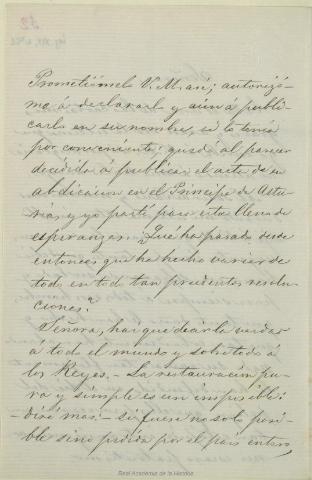 52
Prometiómelo V. M. así; autorizó-
me á declararlo y aún á publi-
carlo en su nombre, si lo tenía
por conveniente; quedó al parecer
decidida á publicar el acto de su
abdicacion en el Príncipe de Astu-
rias, y yo partí para esta lleno de
esperanzas. ¿Qué ha pasado desde
entonces que ha hecho variar de
todo en todo tan prudentes resolu-
ciones?
Señora, hai que decir la verdad
á todo el mundo y sobre todo á
los Reyes. - La restauracion pu-
ra y simple es un imposible:
- diré mas: - si fuese no solo posi-
ble sino pedida por el país entero,
Real Academia de la Historia